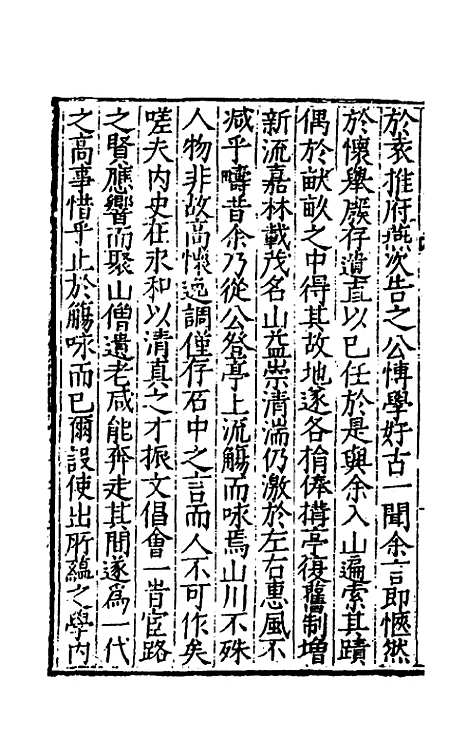 於袤推府燕次告之公博學好古一聞余言即愜然
於懷舉廢存遺直以已任於是與余入山遍索其蹟
偶於畎畝之中得其故地遂各捐俸搆亭復舊制增
新流嘉林載茂名山益崇清湍仍激於左右惠風不
减乎疇昔余乃從公登亭上流觴而咏焉山川不殊
人物非故高懷逸調僅存石中之言而人不可作矣
嗟夫内史在永和以清真之才振文倡會一旹宦路
之賢應響而聚山僧遺老咸能奔走其間遂爲一代
之高事惜乎止於觴咏而已爾設使出所蘊之學内